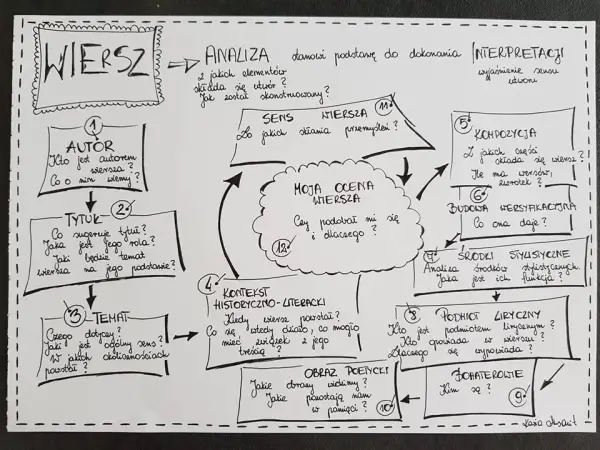 WIERSZ
ANALIZA stanowi podstawę do dokonania INTERPRETACJI
z jakich elementów
składa się utwór?
Jak został skonstruowany?
wyjaśnienie sensu
utworu
1
AUTOR
Kto jest autorem
wiersza?
Co o nim wiemy?
TYTUŁ 2
Co sugeruje tytuł?
Jaka jest jego rola?
Jaki będzie temat
wiersza na jego podstawie?
3 TEMAT
Czego dotyczy?
Jaki jest ogólny sens?
W jakich okolicznościach
powstał?
4 KONTEKST
HISTORYCZNO-LITERACKI
Kiedy wiersz powstał?
Co się wtedy działo, co mogło
mieć związek z jego
treścią?
5
KOMPOZYCJA
Z jakich części
składa się wiersz?
Ile ma wersów,
zwrotek?
6
BUDOWA WERSYFIKACYJNA
Co ona daje?
7 ŚRODKI STYLISTYCZNE
Analiza środków stylistycznych.
Jaka jest ich funkcja?
8 PODMIOT LIRYCZNY
Kto jest podmiotem lirycznym?
Kto opowiada w wierszu?
Dlaczego się wypowiada?
BOHATEROWIE
Kim są?
9
OBRAZ POETYCKI
Jakie obrazy widzimy?
Jakie pozostają nam
w pamięci?
10
SENS WIERSZA 11
Do jakich skłania przemyśleń?
MOJA OCENA
WIERSZA
Czy podobał mi się
i dlaczego?
12
Kasia